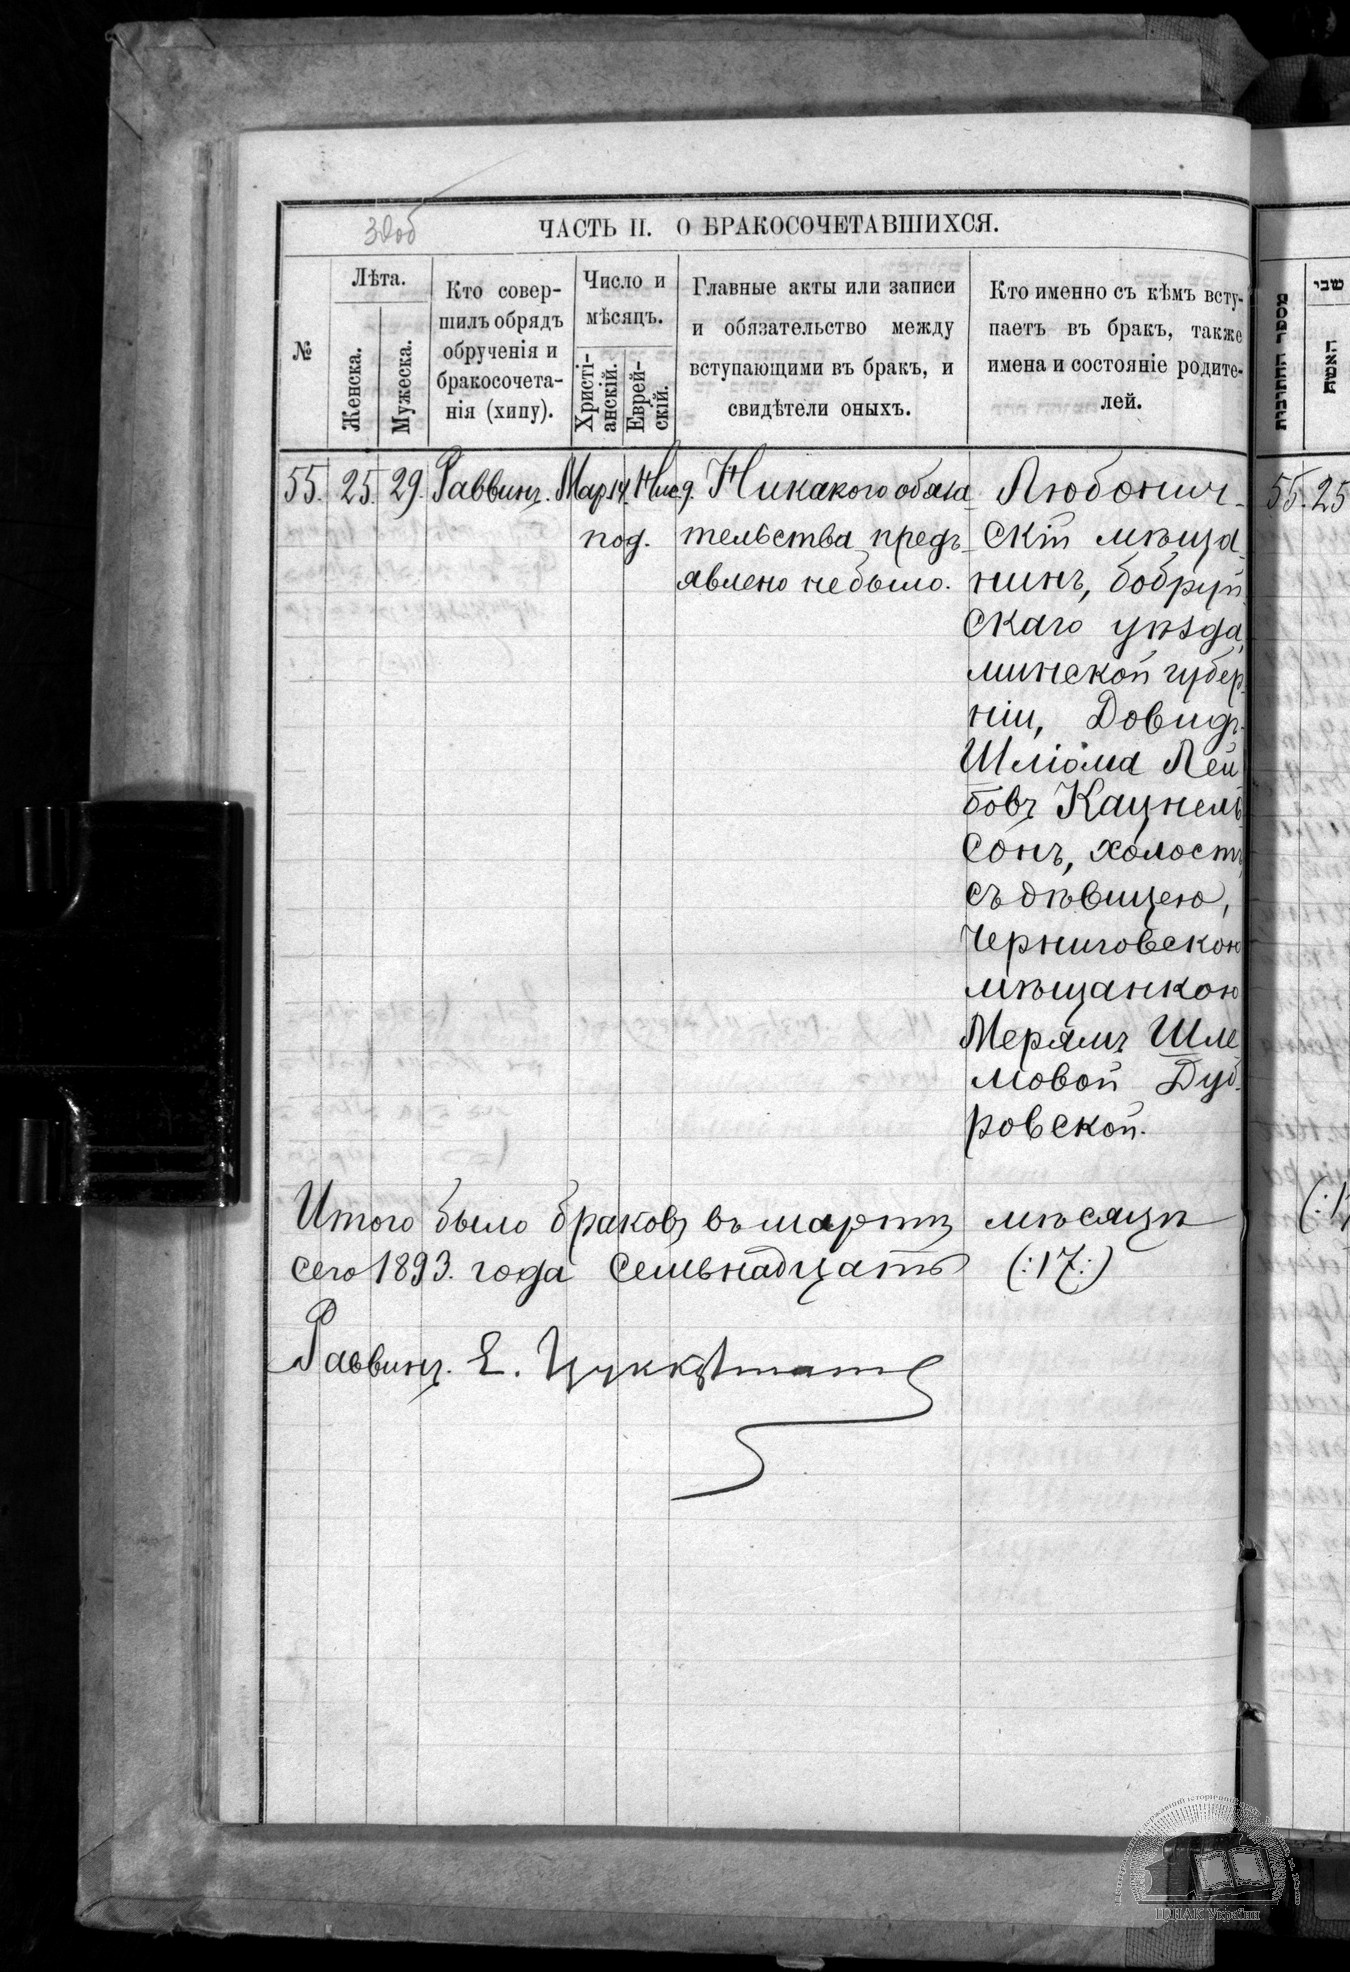 ЧАСТЬ II. О БРАКОСОЧЕТАВШИХСЯ.
№
Лѣта.
Женска.
Мужеска.
Кто совер-
шилъ обрядъ
обрученія и
бракосочета-
нія (хипу).
Число и
мѣсяцъ.
Христі-
анскій.
Еврей-
скій.
Главные акты или записи
и обязательство между
вступающими въ бракъ, и
свидѣтели оныхъ.
Кто именно съ кѣмъ всту-
паетъ въ бракъ, также
имена и состояніе родите-
лей.
55. 25. 29. Раввинъ. Мар 14. Нис 9.
под.
Никакого обяза-
тельства предъ-
явлено небыло.
Любонич-
скій мѣща-
нинъ, бобруй-
скаго уѣзда,
минской губер-
ніи, Довидъ-
Шліома Лей
бовъ Кацнель-
сонъ, холостъ,
съ дѣвицею,
Черниговскою
мѣщанкою
Мерямъ Шле
мовой Дуб-
ровской.
Итого было браковъ въ мартѣ мѣсяцѣ
сего 1893. года семьнадцать (:17:)
Раввинъ. Е.
מספר החתונות
שני
האשה
55. 25
ЦДІАК України